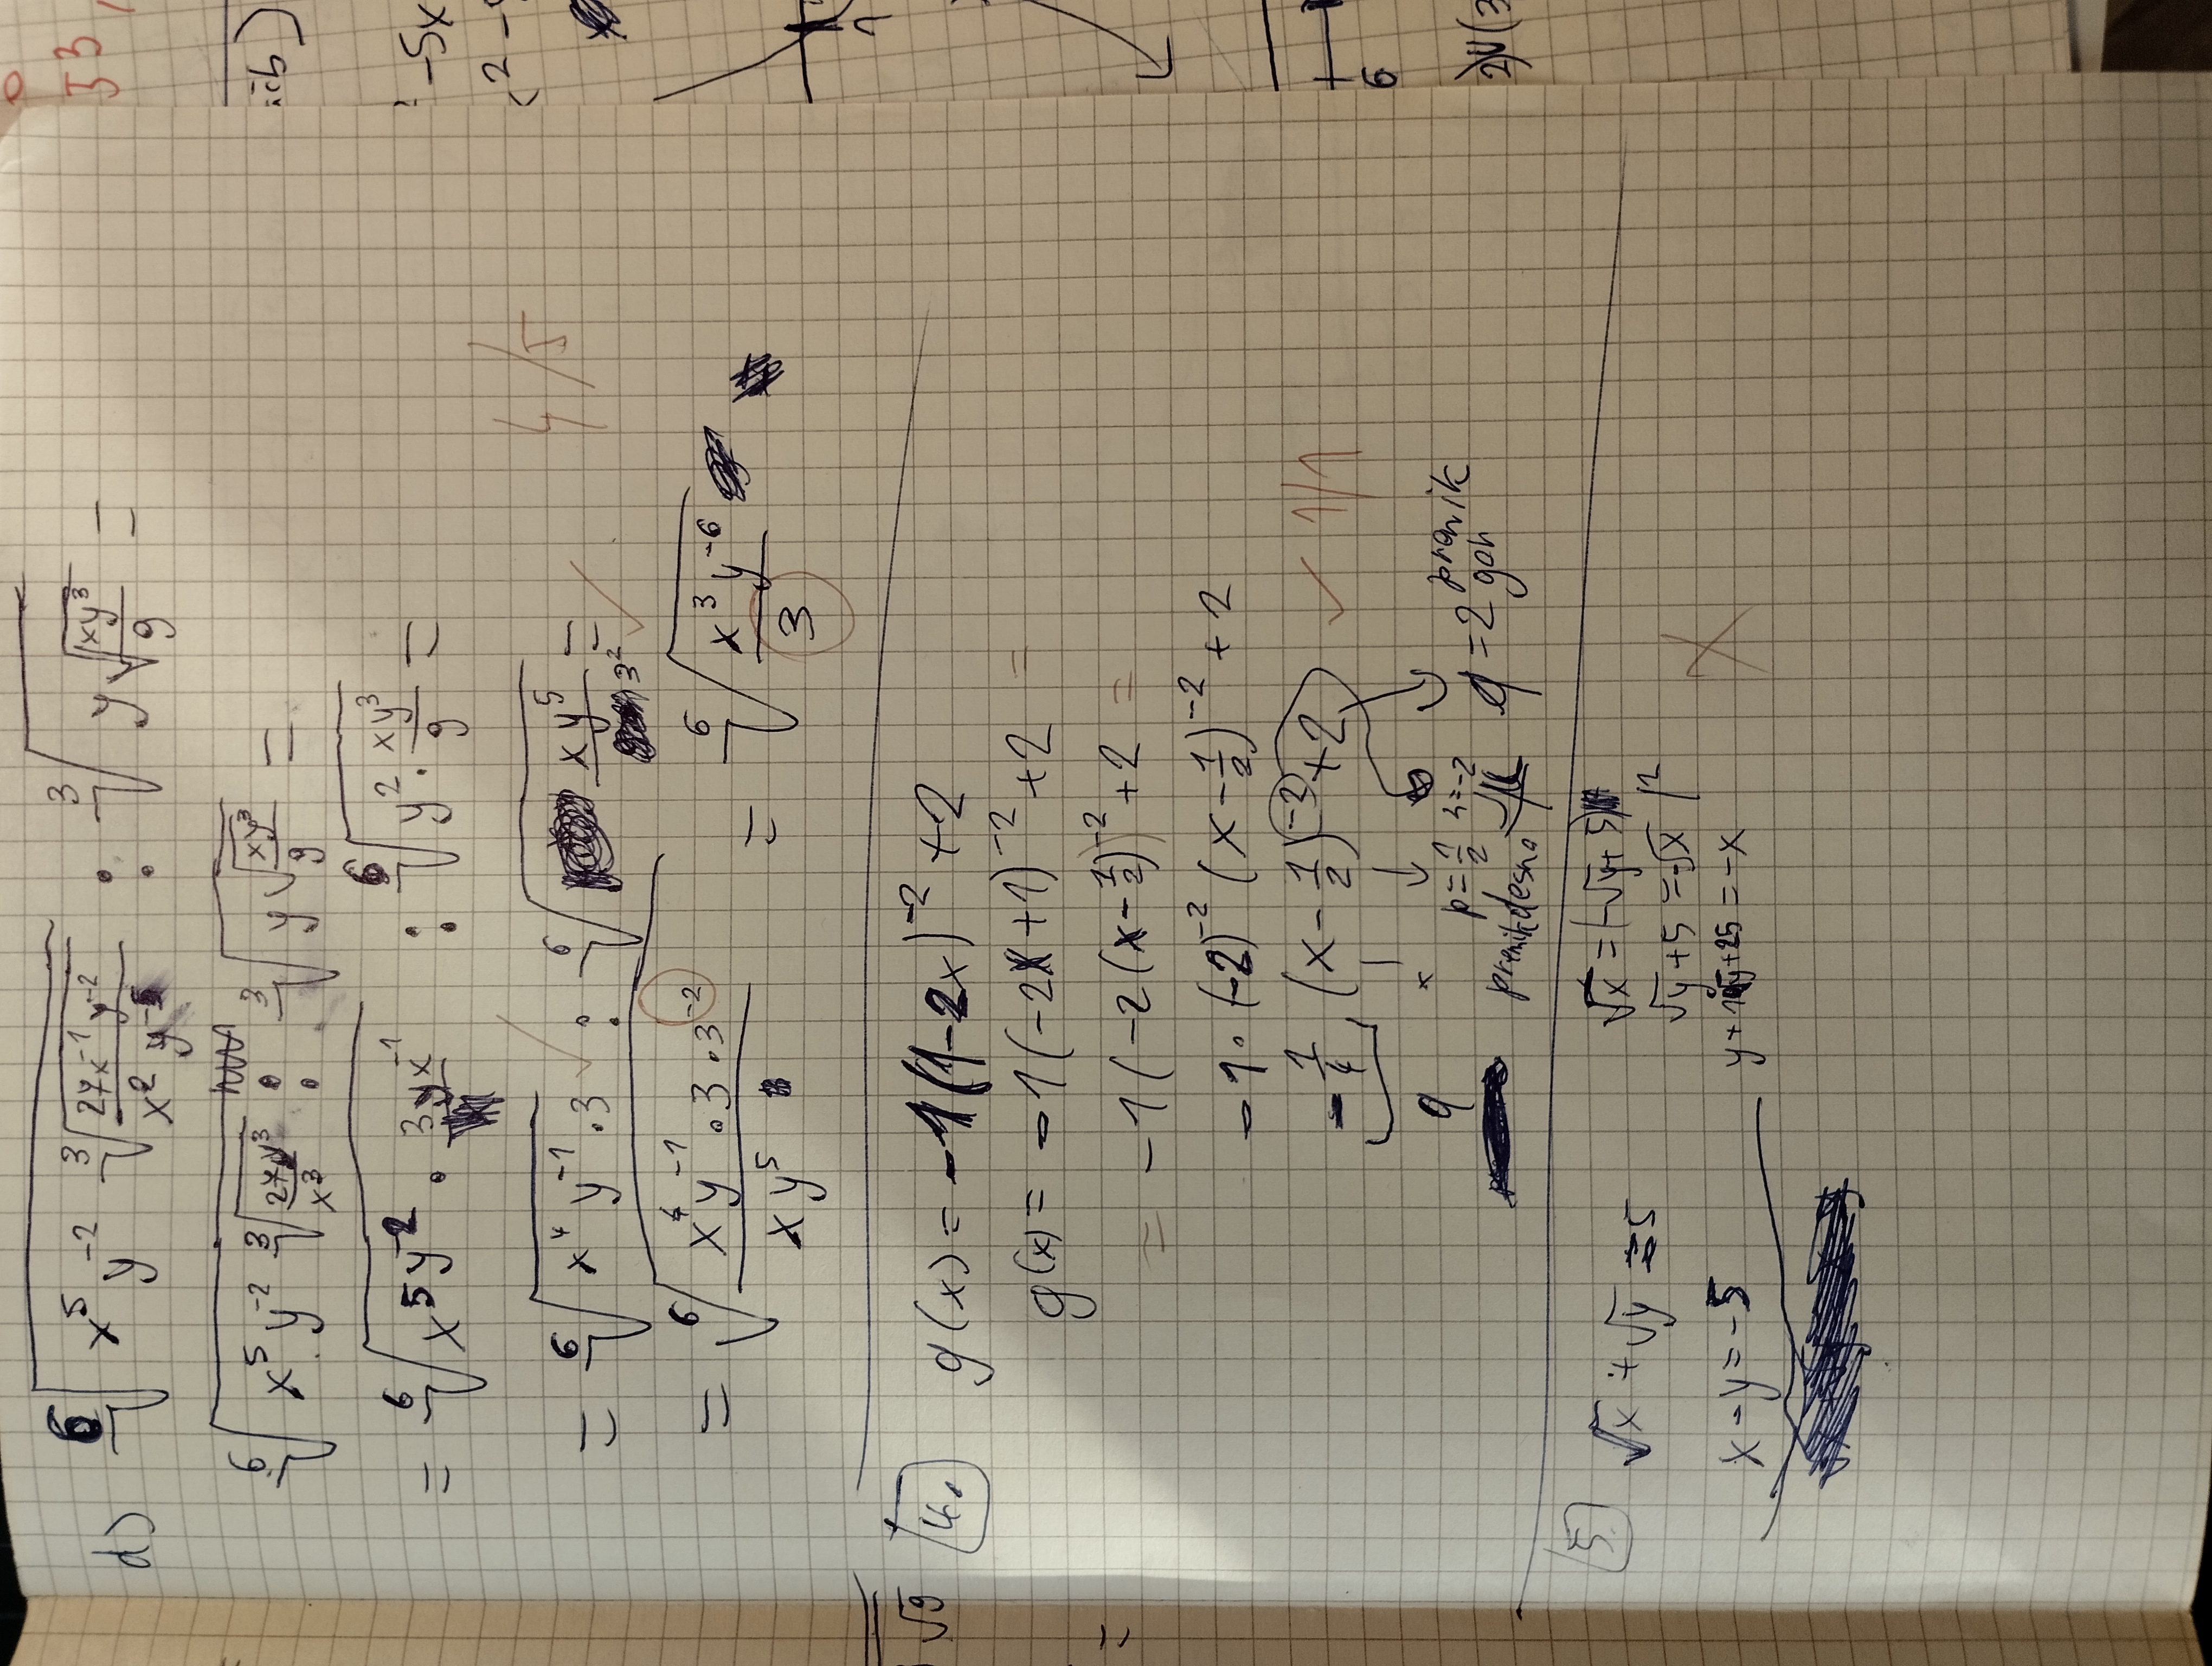 d) ⁶√(x⁵y⁻² ³√(27x⁻¹y⁻²/x²y⁻⁵)) : ³√(y√(xy³/9)) =
⁶√(x⁵y⁻² ³√(27y³/x³)) : ³√(y√(xy³/9)) =
= ⁶√(x⁵y⁻² · 3yx⁻¹) : ⁶√(y² · xy³/9) =
= ⁶√(x⁴y⁻¹ · 3) ✓ : ⁶√(xy⁵/3²) = ✓ 4/5
= ⁶√(x⁴y⁻¹ · 3 · 3⁻²/xy⁵) = ⁶√(x³y⁻⁶/3)
4. g(x) = -1(1-2x)⁻² + 2
g(x) = -1(-2x+1)⁻² + 2 =
= -1(-2(x-1/2))⁻² + 2 =
-1 · (-2)⁻² (x-1/2)⁻² + 2
-1/4 (x-1/2)⁻² + 2 ✓ 1/1
p = 1/2 n = -2 q = 2 premik gor
premik desno
5. √x + √y = 5 √x = (-√y + 5)
√y + 5 = -√x |²
x - y = -5 y + 10√y + 25 = -x
√9
=
-5x
6